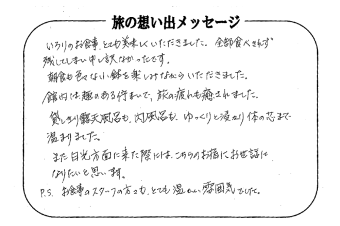 旅の想い出メッセージ
いろりのお食事、とても美味しくいただきました。全部食べきれず
残してしまい申し訳なかったです。
朝食も色々な小鉢を楽しみながらいただきました。
館内は趣のある佇まいで、旅の疲れも癒されました。
貸し切り露天風呂も、内風呂も、ゆっくりと浸かり体の芯まで
温まりました。
また日光方面に来た際には、こちらのお宿にお世話に
なりたいと思います。
P.S. お食事のスタッフの方々も、とても温かい雰囲気でした。